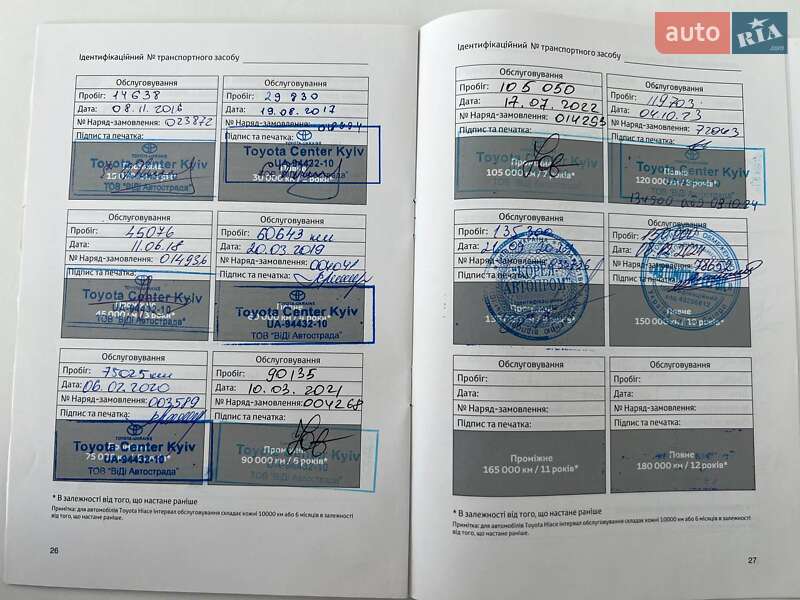 Ідентифікаційний № транспортного засобу
Обслуговування
Пробіг: 14638
Дата: 08.11.2016
№ Наряд-замовлення: 023872
Підпис та печатка:
Обслуговування
Пробіг: 29 830
Дата: 19.08.2017
№ Наряд-замовлення:
Підпис та печатка:
Toyota Center Kyiv
ТОВ "ВіДі Автострада"
Toyota Center Kyiv
UA-94432-10
30 000 км / 2 роки*
ТОВ "ВіДі Автострада"
Обслуговування
Пробіг: 45076
Дата: 11.06.18
№ Наряд-замовлення: 014936
Підпис та печатка:
Обслуговування
Пробіг: 60643 км
Дата: 20.03.2019
№ Наряд-замовлення: 004041
Підпис та печатка:
Toyota Center Kyiv
45 000 км / 3 роки*
ТОВ "ВіДі Автострада"
TOYOTA-UKRAINE
Toyota Center Kyiv
UA-94432-10
ТОВ "ВіДі Автострада"
Обслуговування
Пробіг: 75025 км
Дата: 06.02.2020
№ Наряд-замовлення: 003589
Підпис та печатка:
Обслуговування
Пробіг: 90135
Дата: 10.03.2021
№ Наряд-замовлення: 004268
Підпис та печатка:
TOYOTA-UKRAINE
Toyota Center Kyiv
UA-94432-10
ТОВ "ВіДі Автострада"
Проміжне
90 000 км / 6 років*
* В залежності від того, що настане раніше
Примітка: для автомобілів Toyota Hiace інтервал обслуговування складає кожні 10000 км або 6 місяців в залежності
від того, що настане раніше.
26
Ідентифікаційний № транспортного засобу
Обслуговування
Пробіг: 105 050
Дата: 17.07.2022
№ Наряд-замовлення: 014293
Підпис та печатка:
Обслуговування
Пробіг: 119703
Дата: 04.10.23
№ Наряд-замовлення: 72043
Підпис та печатка:
Проміжне
105 000 км / 7 років*
Toyota Center Kyiv
Повне
120 000 км / 8 років*
ТОВ "ВіДі Автострада"
Обслуговування
Пробіг: 135 300
Дата:
№ Наряд-замовлення:
Підпис та печатка:
"КОРЕЯ
АВТОПРОМ"
Обслуговування
Пробіг:
Дата:
№ Наряд-замовлення:
Підпис та печатка:
Повне
150 000 км / 10 років*
Обслуговування
Пробіг:
Дата:
№ Наряд-замовлення:
Підпис та печатка:
Проміжне
165 000 км / 11 років*
Обслуговування
Пробіг:
Дата:
№ Наряд-замовлення:
Підпис та печатка:
Повне
180 000 км / 12 років*
* В залежності від того, що настане раніше
Примітка: для автомобілів Toyota Hiace інтервал обслуговування складає кожні 10000 км або 6 місяців в залежності
від того, що настане раніше.
27
auto RIA.com